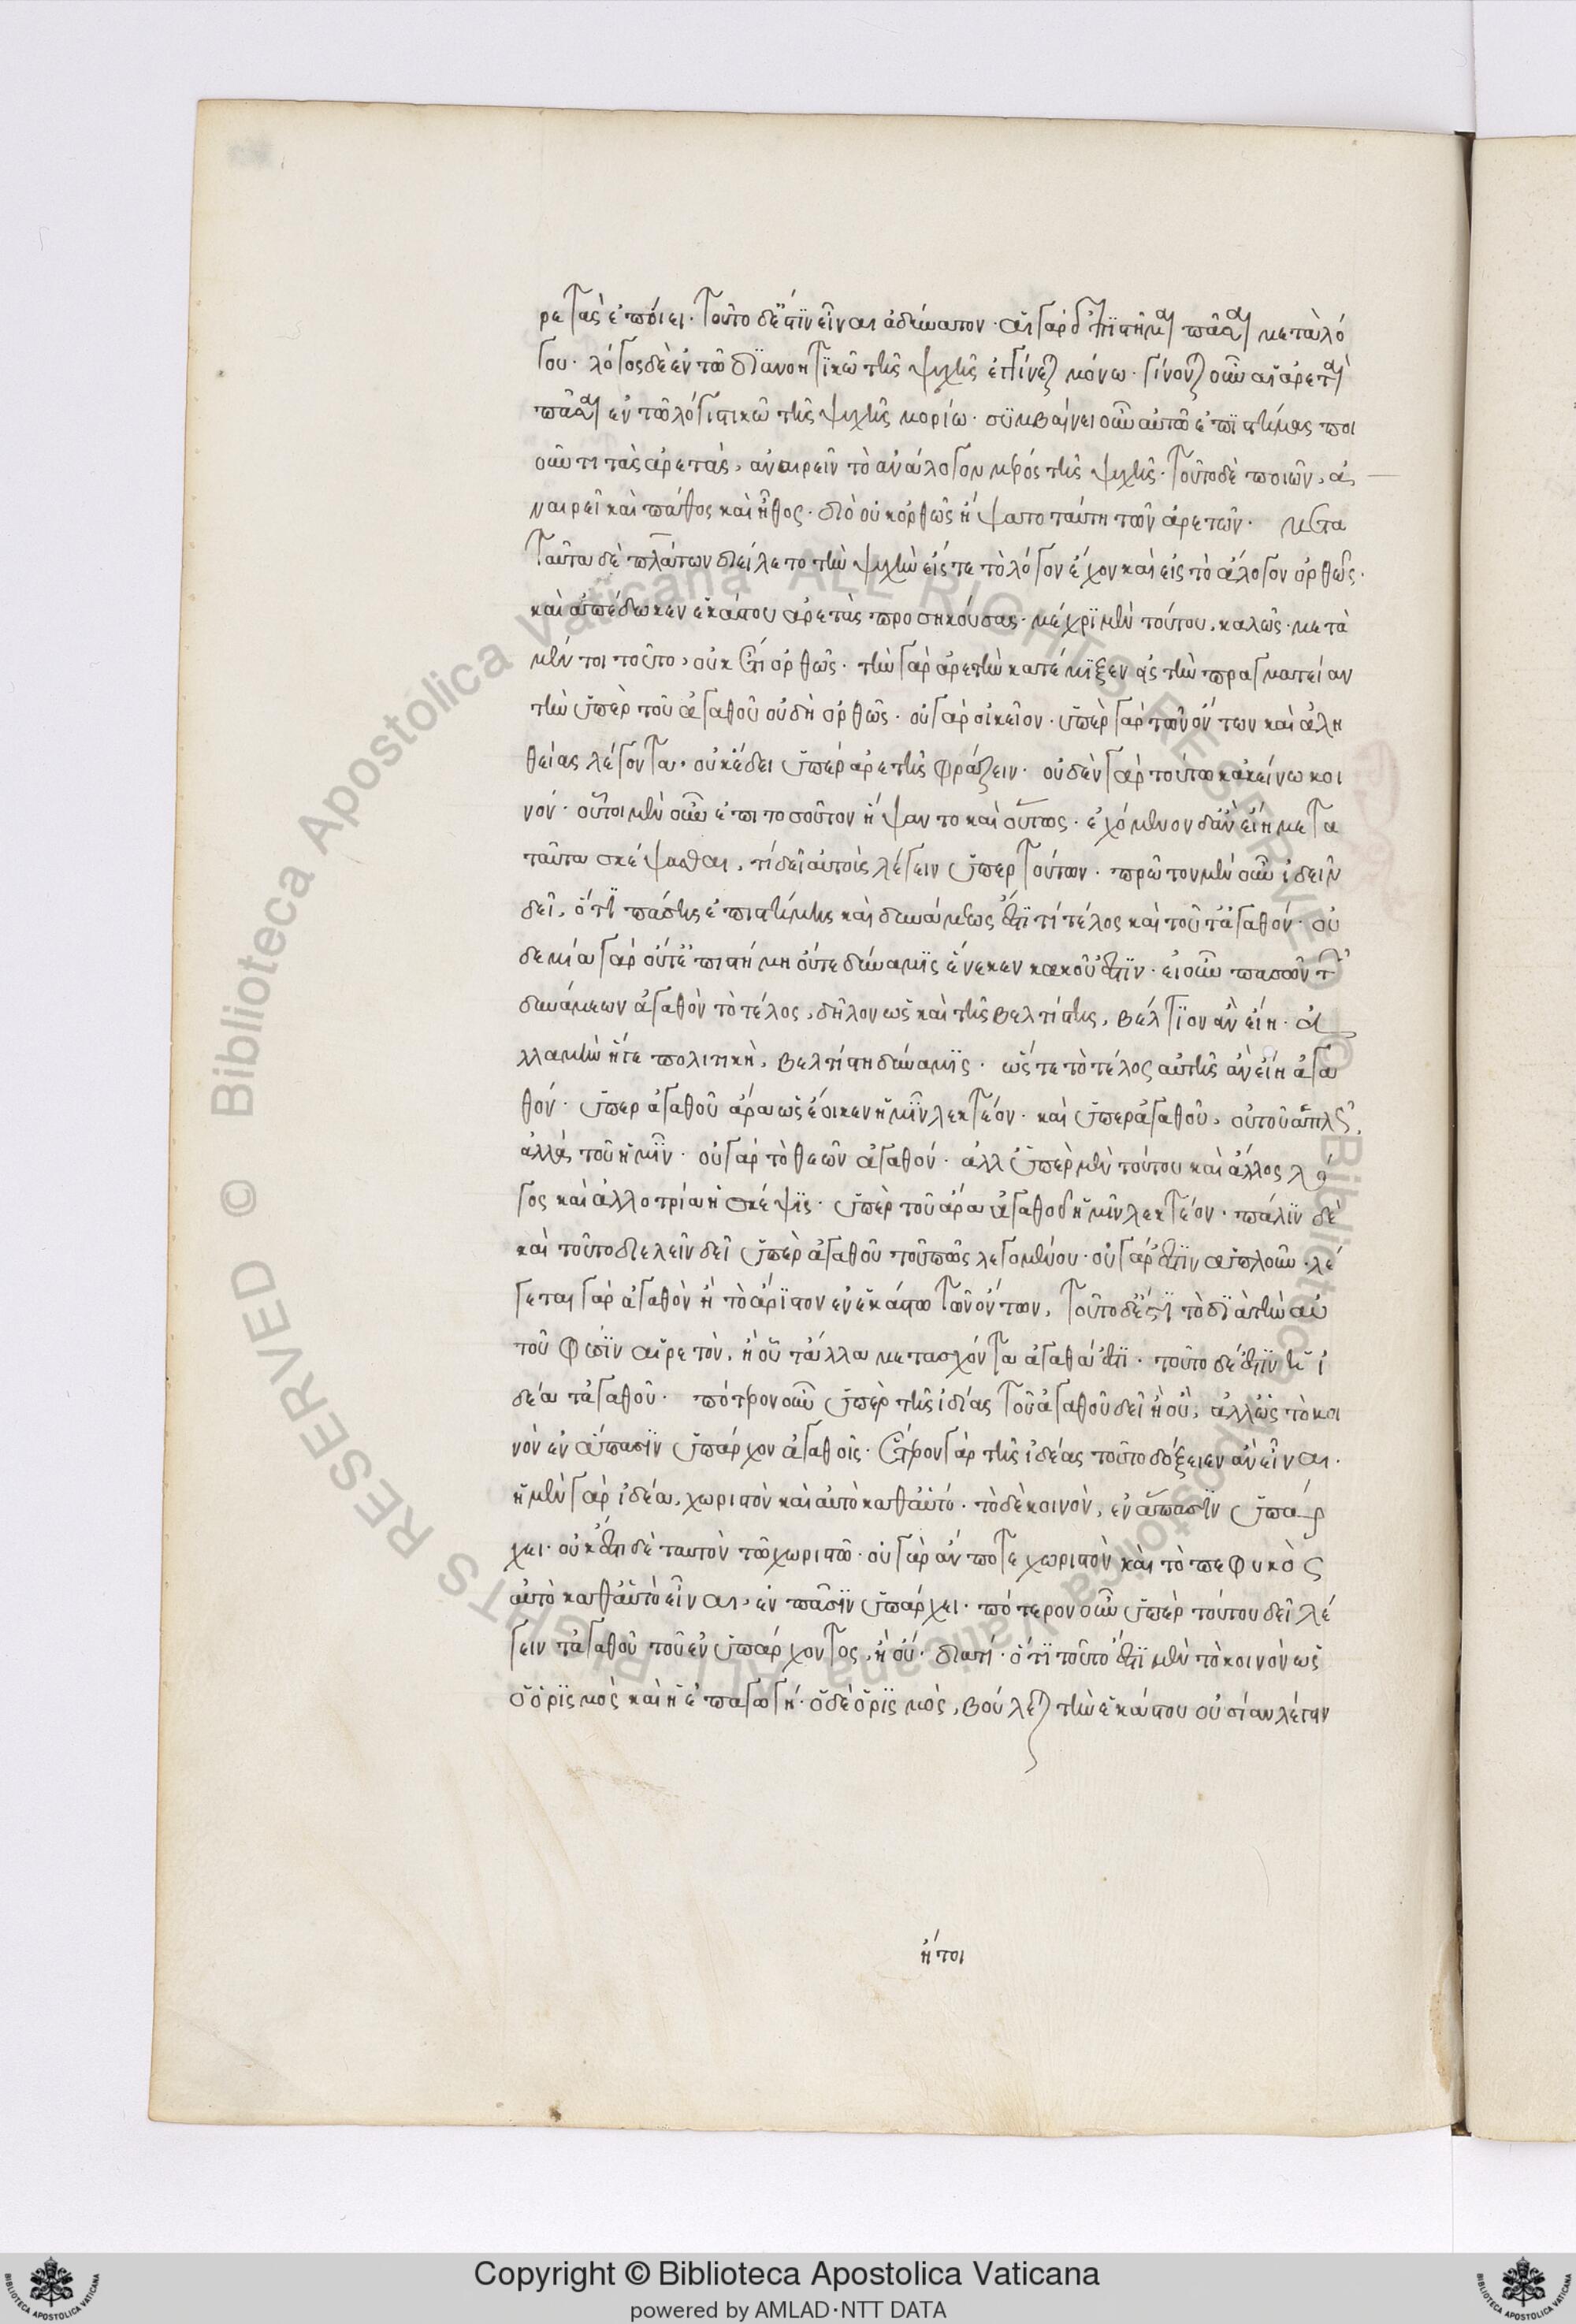 ρετὰς ἐπόιει. τοῦτο δέ ἐστιν εἶναι ἀδύνατον. αἱ γὰρ ἐπιστῆμαι πᾶσαι μετὰ λό
γου. λόγος δὲ ἐν τῶ διανοητικῶ τῆς ψυχῆς ἐγγίνεται μόνω. γίνονται οὖν αἱ ἀρεταὶ
πᾶσαι ἐν τῶ λογιστικῶ τῆς ψυχῆς μορίω. συμβαίνει οὖν αὐτῶ ἐπιστήμας ποι
οῦντι τὰς ἀρετὰς, ἀναιρεῖν τὸ ἀνάλογον μέρος τῆς ψυχῆς. τοῦτο δὲ ποιῶν, ἀ
ναιρεῖ καὶ πάθος καὶ ἦθος. διὸ οὐκ ὀρθῶς ἥψατο ταύτη τῶν ἀρετῶν. μετα
ταῦτα δὲ πλάτων διείλετο τὴν ψυχὴν εἴς τε τὸ λόγον ἔχον καὶ εἰς τὸ ἄλογον ὀρθῶς.
καὶ ἀπέδωκεν ἑκάστου ἀρετὰς προσηκούσας. μέχρι μὲν τούτου, καλῶς. μετὰ
μέν τοι τοῦτο, οὐκ ἔτι ὀρθῶς. τὴν γὰρ ἀρετὴν κατέμιξεν εἰς τὴν πραγματείαν
τὴν ὑπὲρ τοῦ ἀγαθοῦ οὐ δὴ ὀρθῶς. οὐ γὰρ οἰκεῖον. ὑπὲρ γὰρ τῶν ὄντων καὶ ἀλη
θείας λέγοντα. οὐκ ἔδει ὑπὲρ ἀρετῆς φράζειν. οὐδὲν γὰρ τούτω κἀκείνω κοι
νόν. οὗτοι μὲν οὖν ἐπιτοσοῦτον ἥψαντο καὶ οὕτως. ἐχόμενον δ' ἂν εἴη μετα
ταῦτα σκέψασθαι, τί δεῖ αὐτοὺς λέγειν ὑπὲρ τούτων. πρῶτον μὲν οὖν ἰδεῖν
δεῖ, ὅτι πάσης ἐπιστήμης καὶ δυνάμεως ἐστί τι τέλος καὶ τοῦτ' ἀγαθόν. οὐ
δεμία γὰρ οὔτ' ἐπιστήμη οὔτε δύναμις ἕνεκεν κακοῦ ἐστίν. εἰ οὖν πασῶν τῶν
δυνάμεων ἀγαθὸν τὸ τέλος, δῆλον ὡς καὶ τῆς βελτίστης, βέλτιον ἂν εἴη. ἀ
λλα μὴν ἥ γε πολιτικὴ, βελτίστη δύναμις. ὥστε τὸ τέλος αὐτῆς ἂν εἴη ἀγα
θόν. ὑπὲρ ἀγαθοῦ ἄρα ὡς ἔοικεν ἡμῖν λεκτέον. καὶ ὑπὲρ ἀγαθοῦ, οὐ τοῦ ἁπλῶς.
ἀλλὰ τοῦ ἡμῖν. οὐ γὰρ τὸ θεῶν ἀγαθόν. ἀλλ' ὑπὲρ μὲν τούτου καὶ ἄλλος λό
γος καὶ ἀλλοτρία ἡ σκέψις. ὑπὲρ τοῦ ἄρα ἀγαθοῦ ἡμῖν λεκτέον. πάλιν δὲ
καὶ τοῦτο διελεῖν δεῖ ὑπὲρ ἀγαθοῦ τοῦ πῶς λεγομένου. οὐ γάρ ἐστιν ἁπλοῦν. λέ
γεται γὰρ ἀγαθὸν ἢ τὸ ἄριστον ἐν ἑκάστω τῶν ὄντων, τοῦτο δέ ἐστι τὸ διὰ τὴν αὑ
τοῦ φύσιν αἱρετόν, ἢ οὗ τἄλλα μετασχόντα ἀγαθά ἐστι. τοῦτο δέ ἐστιν ἡ ἰ
δέα τἀγαθοῦ. πότερον οὖν ὑπὲρ τῆς ἰδέας τοῦ ἀγαθοῦ δεῖ ἢ οὔ, ἀλλ' ὡς τὸ κοι
νὸν ἐν ἅπασιν ὑπάρχον ἀγαθοῖς. ἕτερον γὰρ τῆς ἰδέας τοῦτο δόξειεν ἂν εἶναι.
ἡ μὲν γὰρ ἰδέα, χωριστὸν καὶ αὐτὸ καθ' αὑτό. τὸ δὲ κοινὸν, ἐν ἅπασιν ὑπάρ
χει. οὐκ ἔστι δὲ ταυτὸν τῶ χωριστῶ. οὐ γὰρ ἄν ποτε χωριστὸν καὶ τὸ πεφυκὸς
αὐτὸ καθ' αὑτὸ εἶναι, ἐν πᾶσιν ὑπάρχει. πότερον οὖν ὑπὲρ τούτου δεῖ λέ
γειν τἀγαθοῦ τοῦ ἐν ὑπάρχοντος, ἢ οὔ. διατί. ὅτι τοῦτο ἐστι μὲν τὸ κοινὸν ὡς
ὁ ὁρισμὸς καὶ ἡ ἐπαγωγή. ὁ δὲ ὁρισμὸς, βούλεται τὴν ἑκάστου οὐσίαν λέγειν
ἤτοι